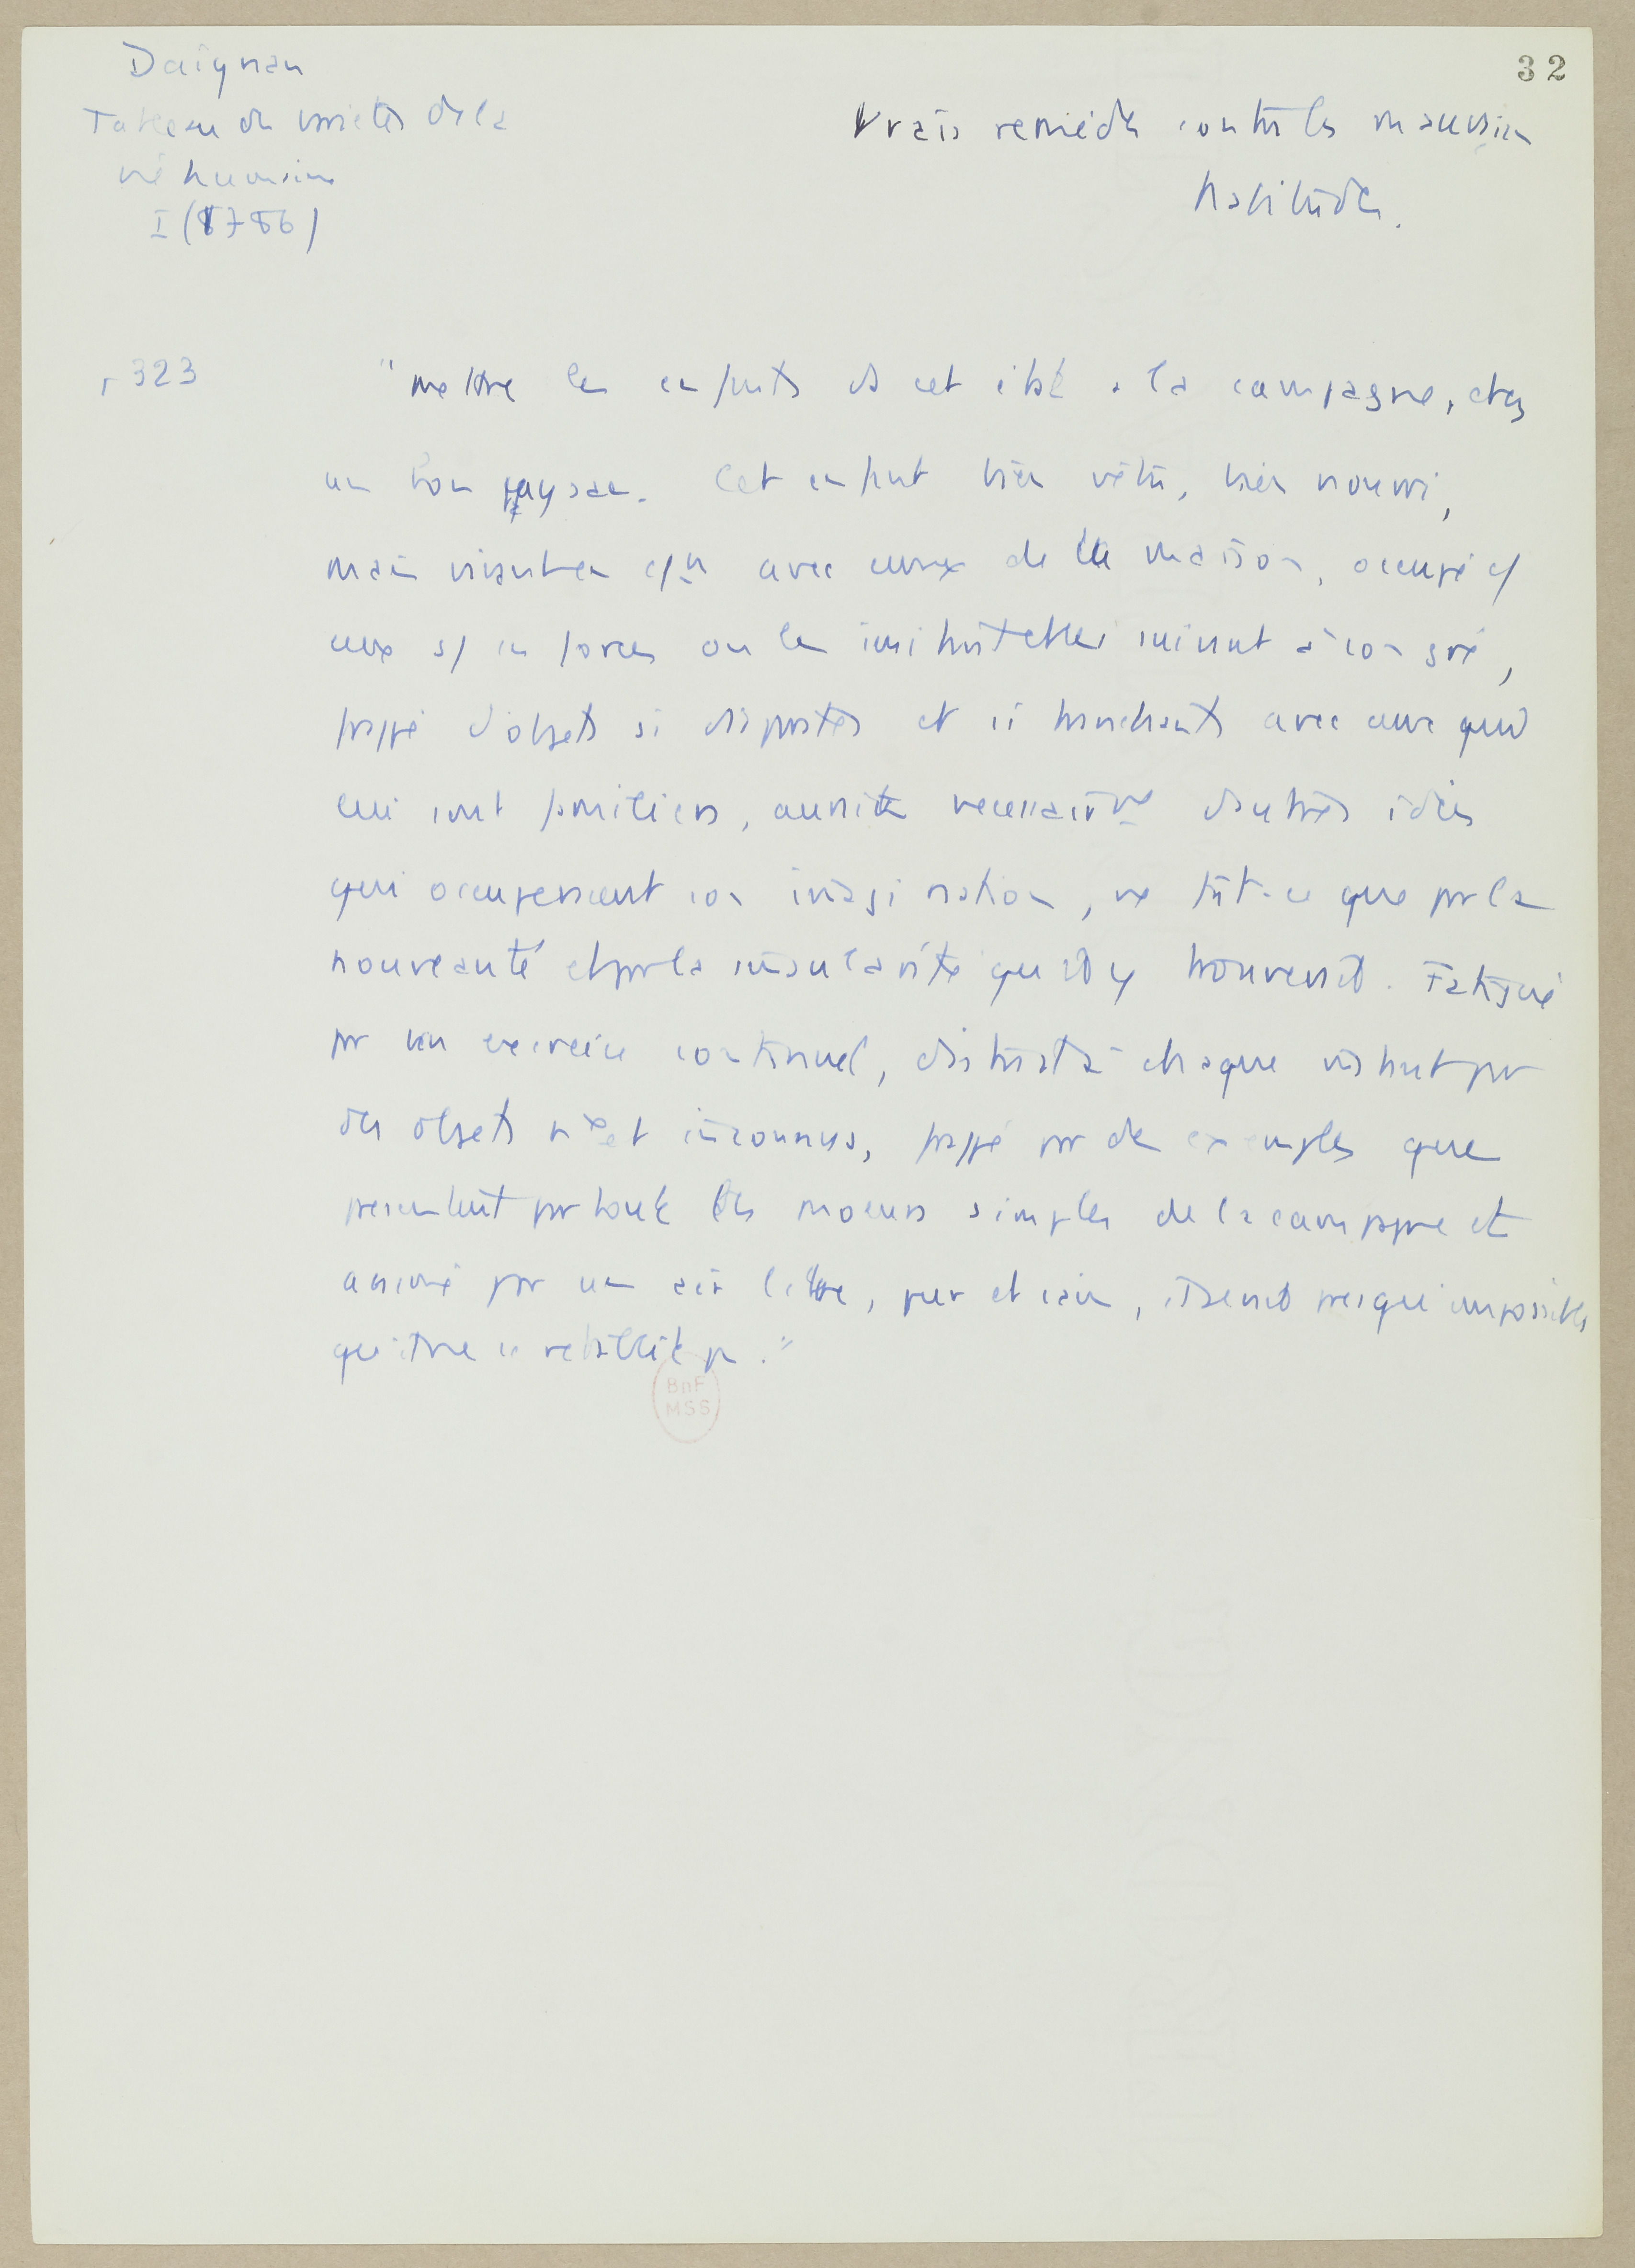 32
Daignan
Tableau des variétés de la
vie humaine
I (1786)
Vrais remèdes contre les mauvaises
habitudes.
p 323
"mettre les enfants ds cet état à la campagne, chez
un bon paysan. Cet enfant bien vêtu, bien nourri,
mais vivant en avec ceux de la maison, occupé c/
eux s/ ses forces ou les imitant et les suivant à son gré,
frappé d'objets si disparates et si tranchants avec ceux qui
lui sont familiers, aurait nécessairement d'autres idées
qui occuperaient son imagination, ne fût-ce que par la
nouveauté et par la singularité qu'il y trouverait. Fatigué
par un exercice continuel, distrait à chaque instant par
des objets et inconnus, frappé par des exemples que
présentent partout les moeurs simples de la campagne et
animé par un air libre, pur et sain, il serait presque impossible
qu'il ne se rétablît pas."
BnF
MSS